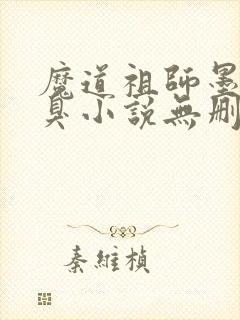 魔道祖師墨
臭小説無刪
秦維楨